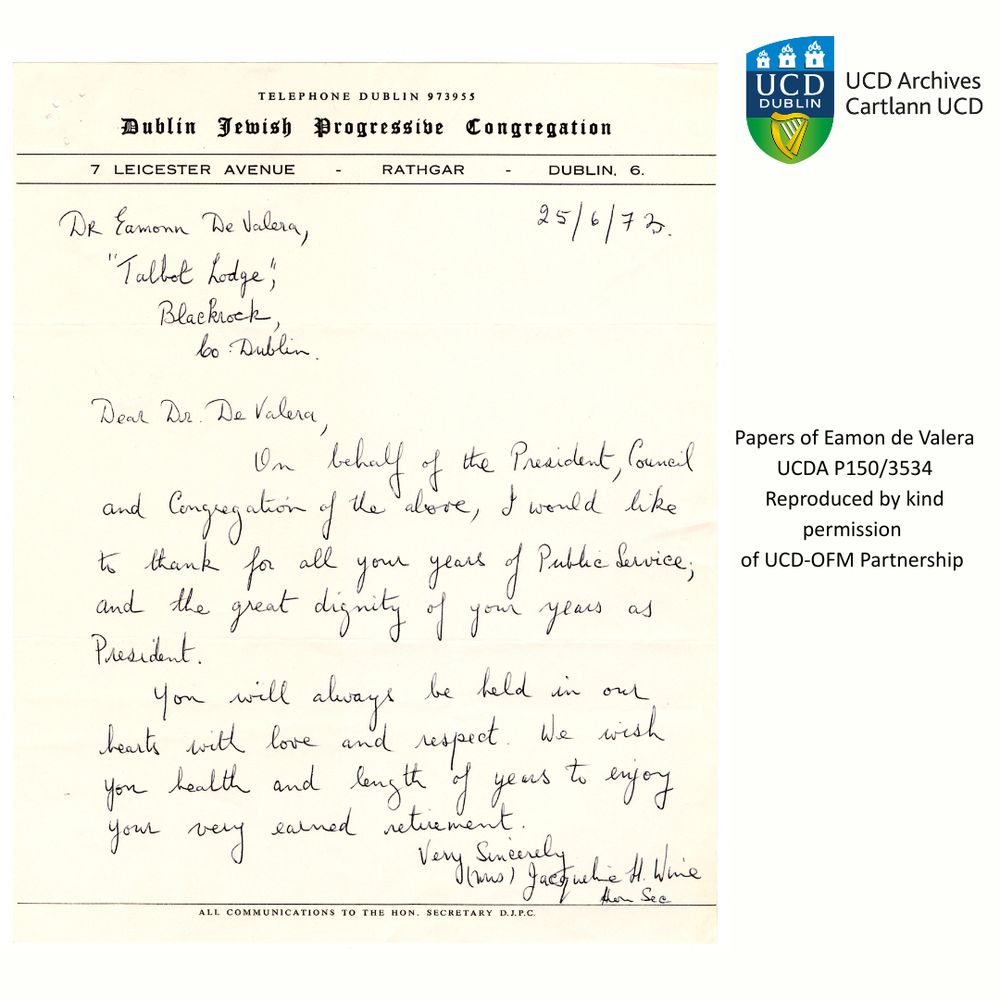 TELEPHONE DUBLIN 973955
Dublin Jewish Progressive Congregation
7 LEICESTER AVENUE - RATHGAR - DUBLIN, 6.
25/6/73.
Dr Eamonn De Valera,
"Talbot Lodge",
Blackrock,
Co. Dublin.
Dear Dr. De Valera,
On behalf of the President, Council
and Congregation of the above, I would like
to thank for all your years of Public Service;
and the great dignity of your years as
President.
You will always be held in our
hearts with love and respect. We wish
you health and length of years to enjoy
your very earned retirement.
Very Sincerely
(Mrs) Jacqueline H. Wine
Hon Sec
ALL COMMUNICATIONS TO THE HON. SECRETARY D.J.P.C.
UCD
DUBLIN
UCD Archives
Cartlann UCD
Papers of Eamon de Valera
UCDA P150/3534
Reproduced by kind
permission
of UCD-OFM Partnership